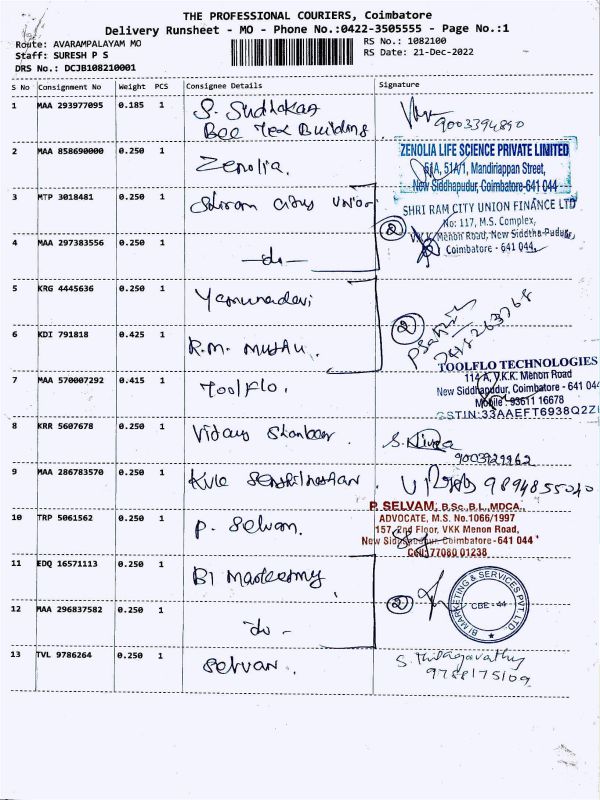 THE PROFESSIONAL COURIERS, Coimbatore
Delivery Runsheet - MO - Phone No.:0422-3505555 - Page No.:1
Route: AVARAMPALAYAM MO
RS No.: 1082100
Staff: SURESH P S
RS Date: 21-Dec-2022
DRS No.: DCJB108210001
S No Consignment No Weight PCS Consignee Details Signature
1 MAA 293977095 0.185 1 S. Sudhakar
Bee Tex Building
9003394890
2 MAA 858690000 0.250 1 Zenolia.
ZENOLIA LIFE SCIENCE PRIVATE LIMITED
51A, 51A/1, Mandiriappan Street,
New Siddhapudur, Coimbatore-641 044
3 MTP 3018481 0.250 1 Shriram City Union
SHRI RAM CITY UNION FINANCE LTD
No: 117, M.S. Complex,
V.K.K Menon Road, New Siddha-Pudur,
Coimbatore - 641 044.
2
4 MAA 297383556 0.250 1 —do—
5 KRG 4445636 0.250 1 Yamunadevi
2
6 KDI 791818 0.425 1 R.M. Muthu.
7 MAA 570007292 0.415 1 Toolflo.
TOOLFLO TECHNOLOGIES
114 A, V.K.K. Menon Road
New Siddhapudur, Coimbatore - 641 044
Mobile : 93611 16678
GSTIN:33AAEFT6938Q2Z
8 KRR 5607678 0.250 1
9 MAA 286783570 0.250 1
9894855040
10 TRP 5061562 0.250 1 P. Selvam.
P. SELVAM, B.Sc.,B.L.,MDCA.,
ADVOCATE, M.S. No.1066/1997
157, 2nd Floor, VKK Menon Road,
New Siddhapudur, Coimbatore - 641 044
Cell:77080 01238
11 EDQ 16571113 0.250 1 BI
2
BI MARKETING & SERVICES PVT. LTD.
CBE - 44
12 MAA 296837582 0.250 1 do -
13 TVL 9786264 0.250 1 Selvan.
S. Thilagavathy
9788175109